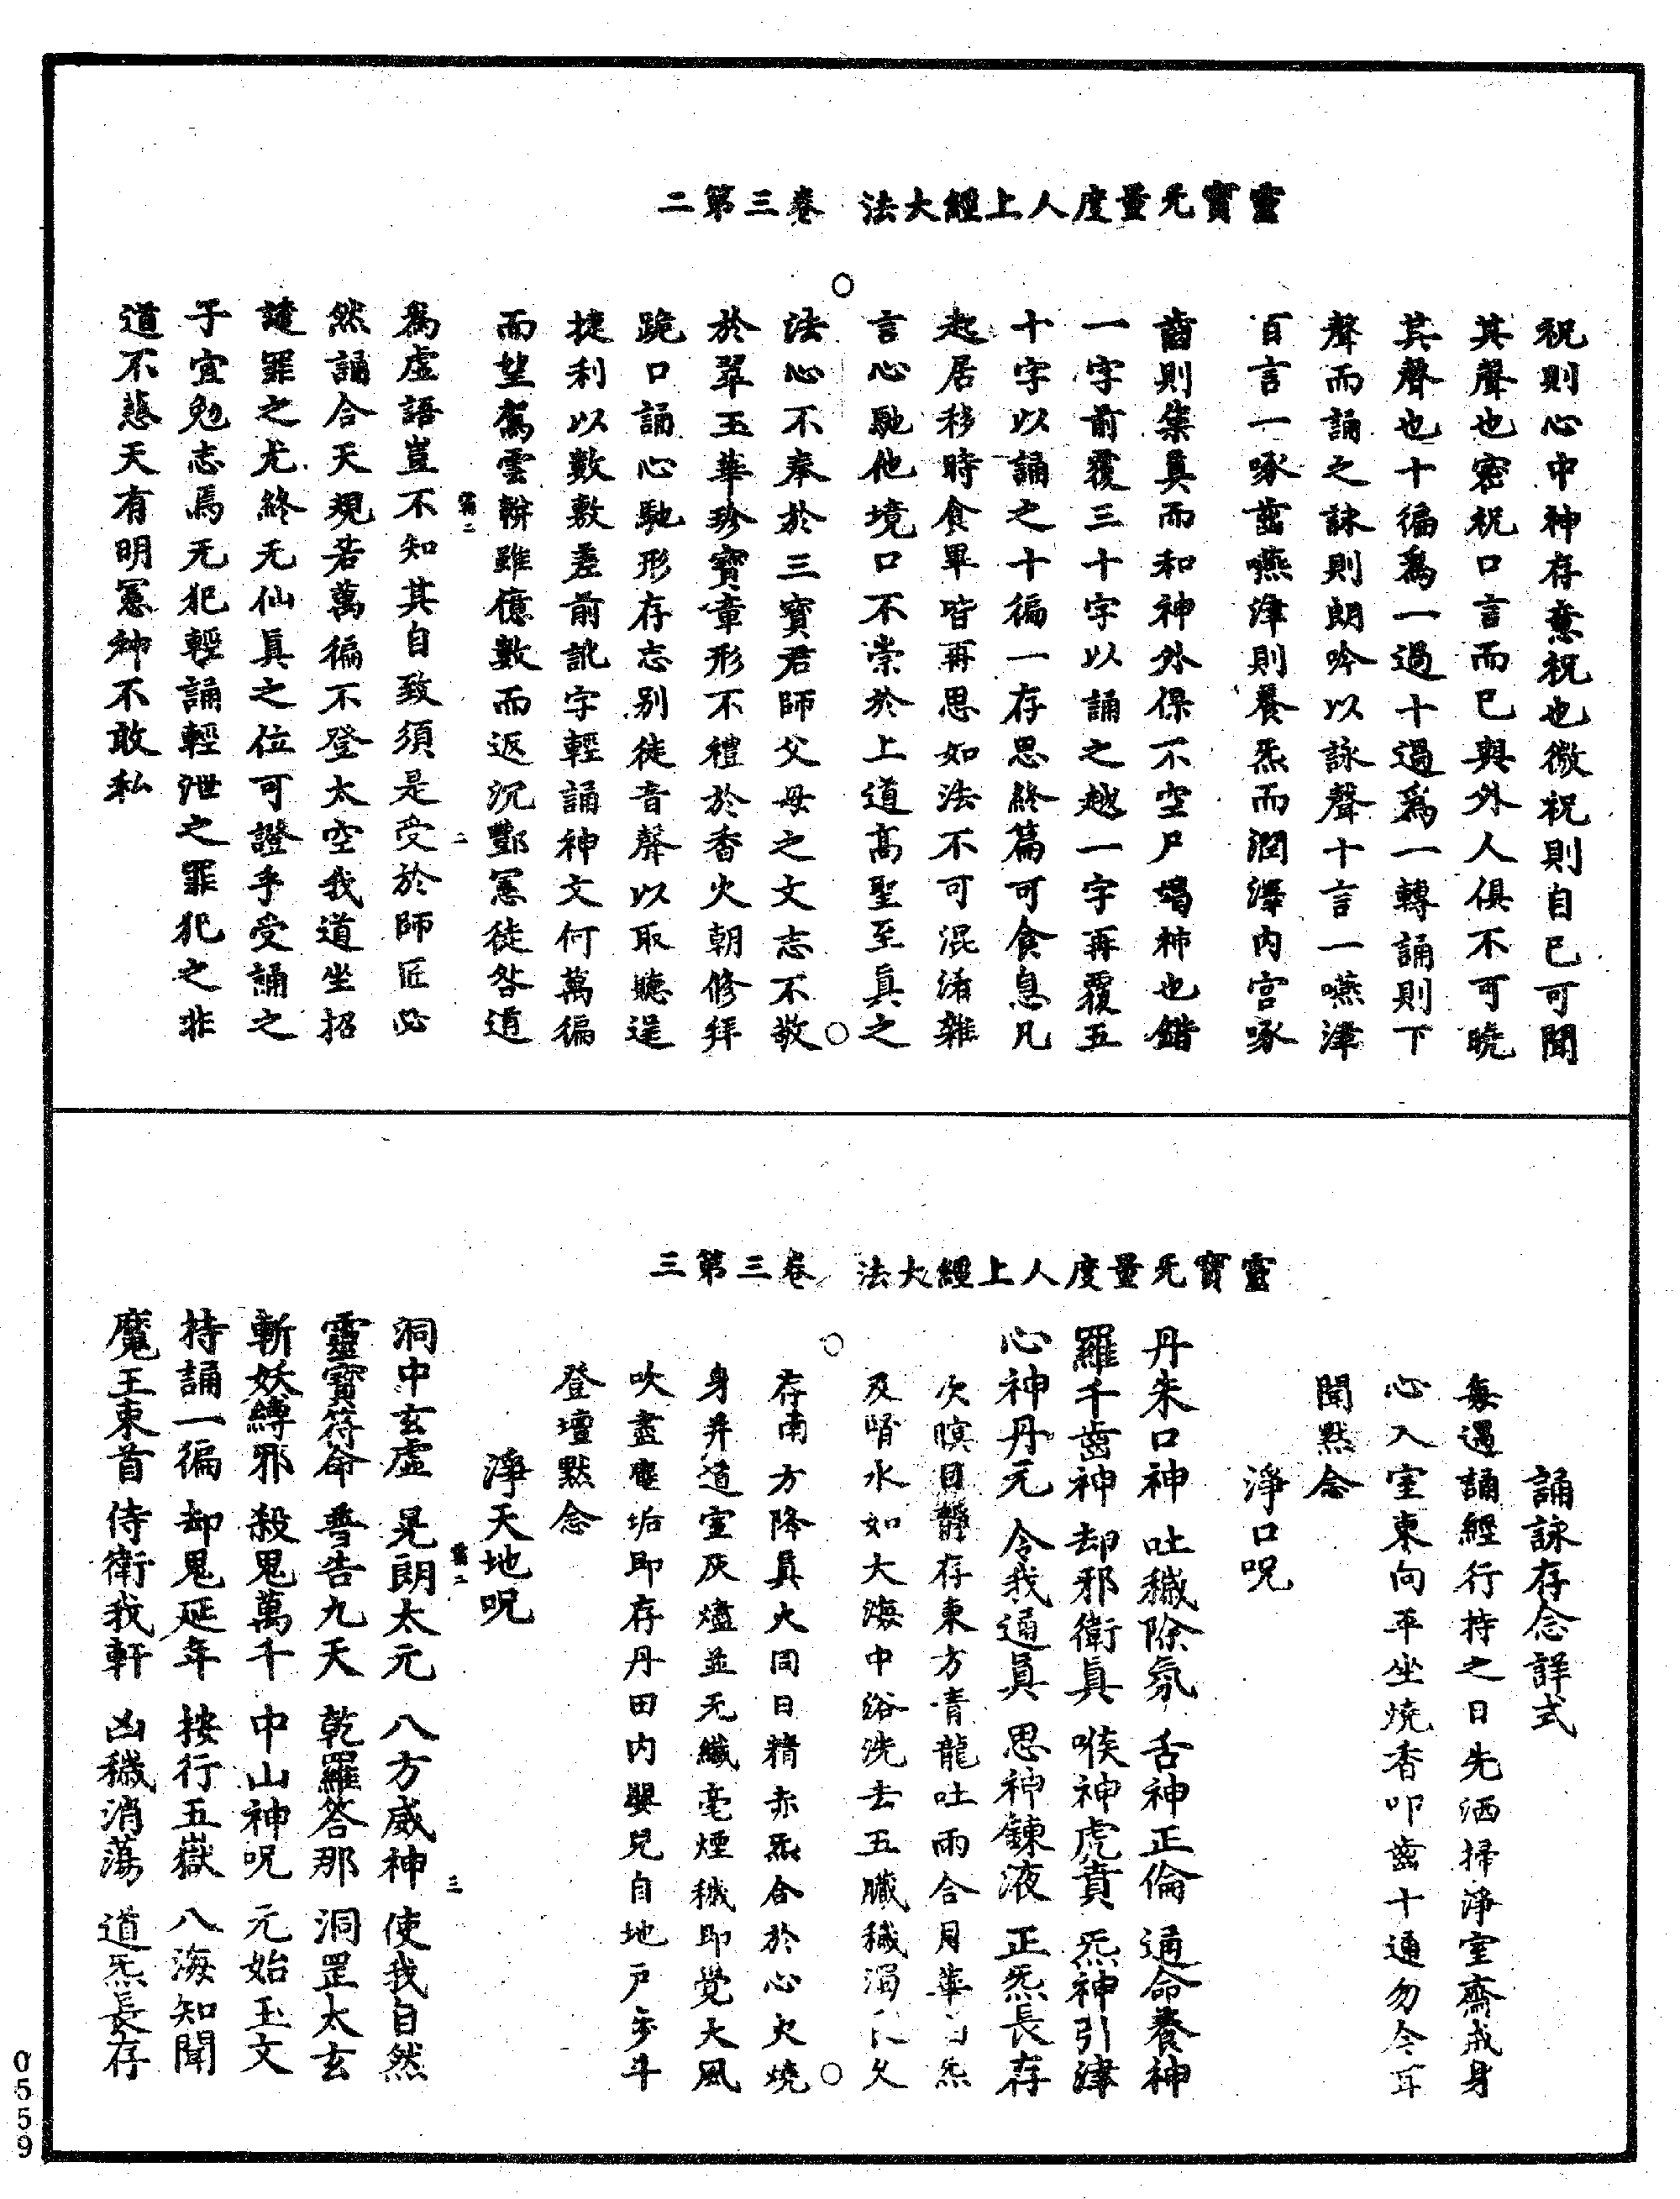 靈寶无量度人上經大法　卷三第二
祝則心中神存意祝也微祝則自已可聞
其聲也密祝口言而已與外人俱不可曉
其聲也十徧爲一過十過爲一轉誦則下
聲而誦之詠則朗吟以詠聲十言一嚥津
百言一啄齒嚥津則養炁而潤澤內宫啄
齒則集真而和神外保不空尸塲柿也錯
一字前覆三十字以誦之越一字再覆五
十字以誦之十徧一存思終篇可食息凡
起居移時食畢皆再思如法不可混淆雜
言心馳他境口不崇於上道高聖至真之
法心不奉於三寶君師父母之文志不敬
於翠玉華珍寶章形不禮於香火朝修拜
跪口誦心馳形存忘别徒音聲以取聽逞
捷利以數敷差前訛字輕誦神文何萬徧
而望駕雲軿雖億數而返沉酆㤙徒咎道
爲虛語豈不知其自致須是受於師匠必
然誦合天規若萬徧不登太空我道坐招
謹罪之尤終无仙真之位可證乎受誦之
子宜勉志焉无犯輕誦輕泄之罪犯之非
道不慈天有明憲神不敢私
靈寶无量度人上經大法　卷三第三
誦詠存念詳式
每遇誦經行持之日先洒掃淨室齋戒身
心入室東向平坐燒香叩齒十通勿令耳
聞默念
淨口呪
丹朱口神　吐穢除氛　舌神正倫　通命養神
羅千齒神　却邪衛真　喉神虎賁　炁神引津
心神丹元　令我通真　思神鍊液　正炁長存
次瞑目靜存東方青龍吐雨合月華炁
及腎水如大海中浴洗去五臟穢濁次
存南方降真火同日精赤炁合於心火燒
身并道室灰燼並无纖毫煙穢即覺大風
吹盡塵垢即存丹田内嬰兒自地户步斗
登壇默念
淨天地呪
洞中玄虛　晃朗太元　八方威神　使我自然
靈寶符命　普告九天　乾羅答那　洞罡太玄
斬妖縛邪　殺鬼萬千　中山神呪　元始玉文
持誦一徧　却鬼延年　按行五嶽　八海知聞
魔王束首　侍衛我軒　凶穢消蕩　道炁長存
0559